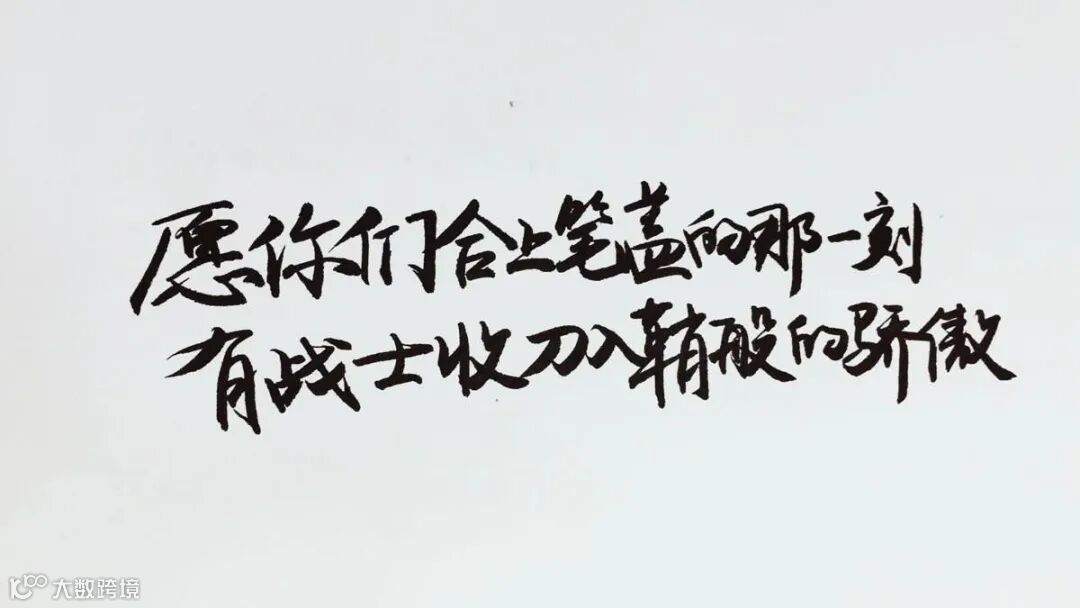 愿你们合上笔盖的那一刻
有战士收刀入鞘般的骄傲
大数跨境